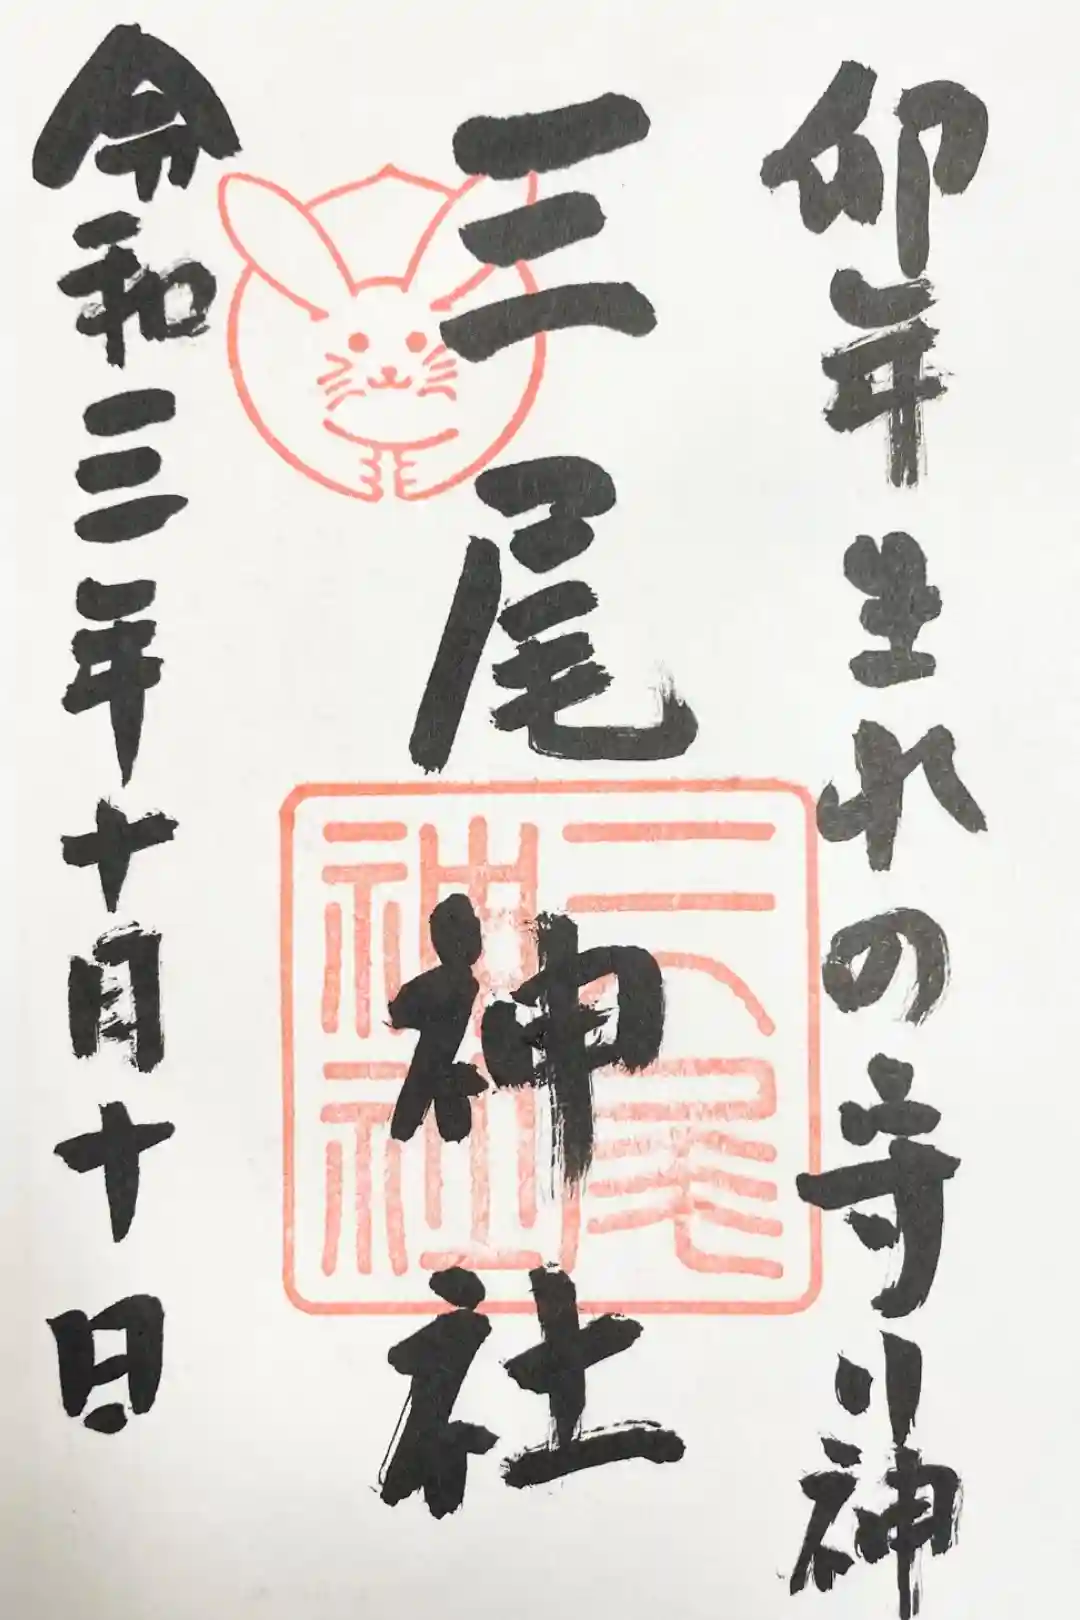 卯年生れの守り神
三尾神社
三尾神社
令和三年十月十日